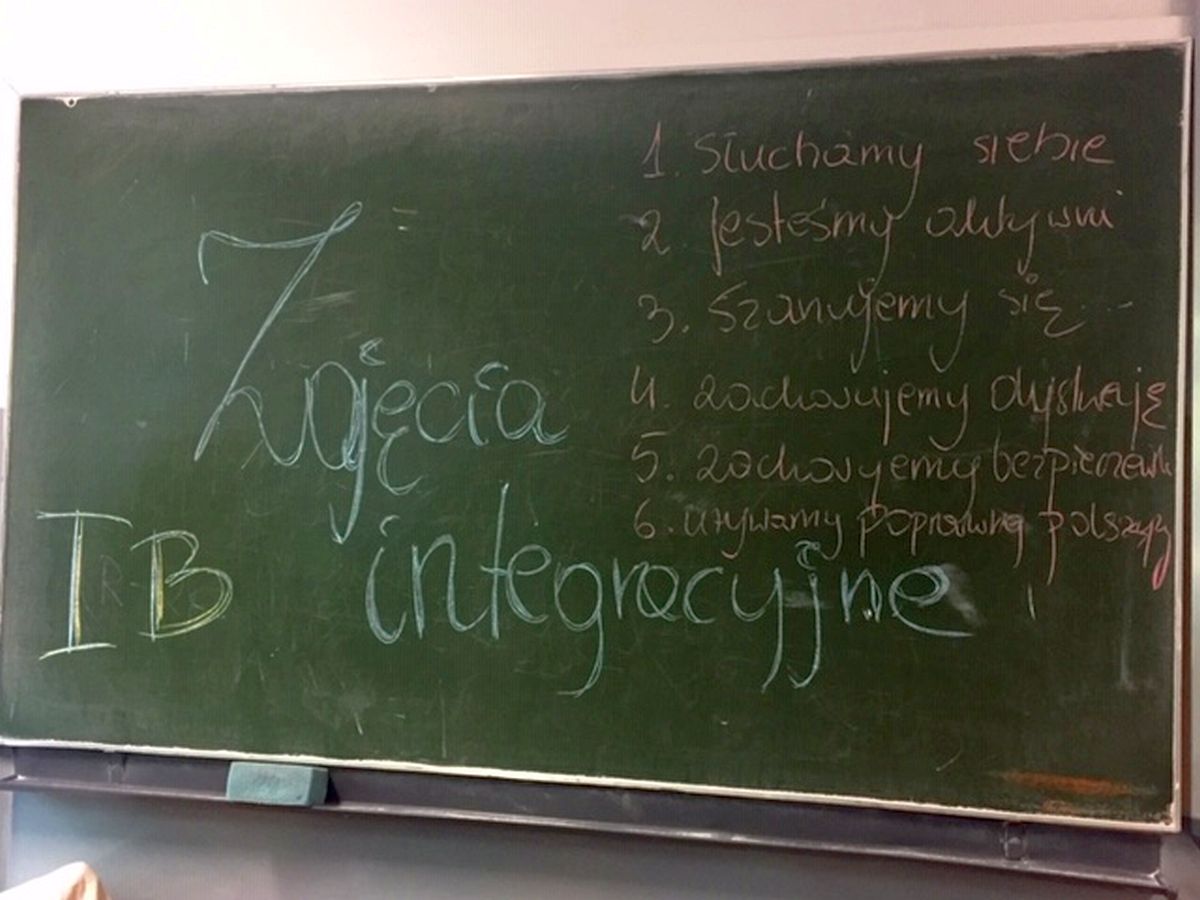 Zajęcia
integracyjne
IB
1. Słuchamy siebie
2 Jesteśmy aktywni
3. Szanujemy się
4. zachowujemy dyskrecję
5. zachowujemy
6. używamy poprawną